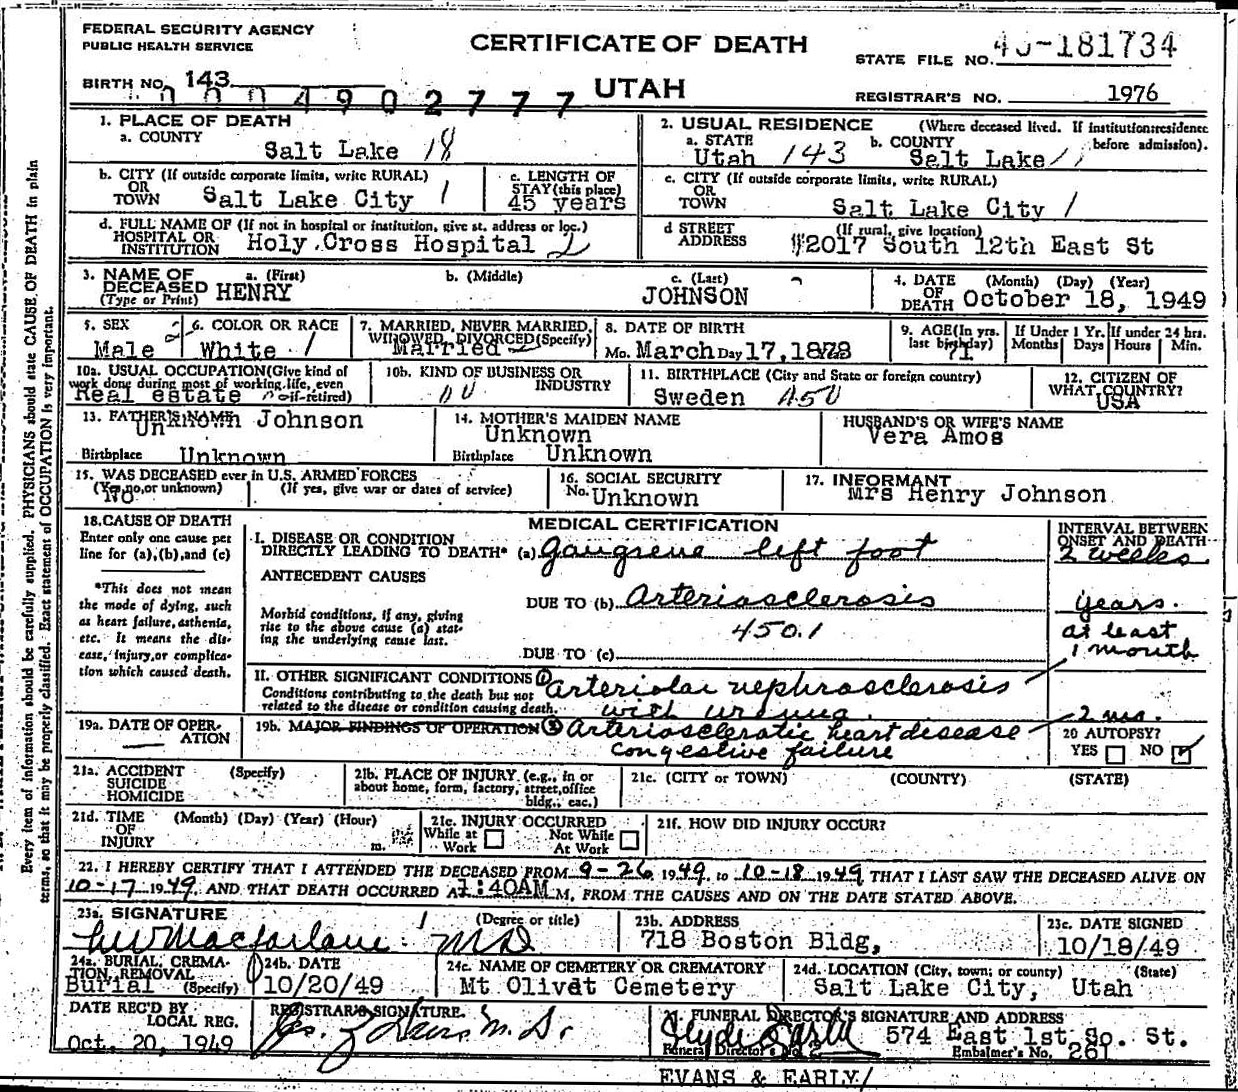 FEDERAL SECURITY AGENCY
PUBLIC HEALTH SERVICE
CERTIFICATE OF DEATH
UTAH
STATE FILE NO. 49-181734
BIRTH NO. 143
0004902777
REGISTRAR'S NO. 1976
1. PLACE OF DEATH
a. COUNTY
Salt Lake 18
2. USUAL RESIDENCE (Where deceased lived. If institution: residence before admission).
a. STATE Utah 143 b. COUNTY Salt Lake /
b. CITY (If outside corporate limits, write RURAL)
OR TOWN Salt Lake City 1
c. LENGTH OF STAY (this place)
45 years
c. CITY (If outside corporate limits, write RURAL)
OR TOWN Salt Lake City /
d. FULL NAME OF (If not in hospital or institution, give st. address or loc.)
HOSPITAL OR INSTITUTION Holy Cross Hospital 2
d STREET ADDRESS (If rural, give location)
2017 South 12th East St
3. NAME OF DECEASED (Type or Print)
a. (First) b. (Middle) c. (Last)
HENRY JOHNSON
4. DATE OF DEATH (Month) (Day) (Year)
October 18, 1949
5. SEX
Male
6. COLOR OR RACE
White /
7. MARRIED, NEVER MARRIED, WIDOWED, DIVORCED (Specify)
Married 2
8. DATE OF BIRTH
Mo. March Day 17, 1878
9. AGE (In yrs. last birthday)
71
If Under 1 Yr. Months Days
If under 24 hrs. Hours Min.
10a. USUAL OCCUPATION (Give kind of work done during most of working life, even if retired)
Real estate
10b. KIND OF BUSINESS OR INDUSTRY
11. BIRTHPLACE (City and State or foreign country)
Sweden
12. CITIZEN OF WHAT COUNTRY?
USA
13. FATHER'S NAME
Unknown Johnson
Birthplace Unknown
14. MOTHER'S MAIDEN NAME
Unknown
Birthplace Unknown
HUSBAND'S OR WIFE'S NAME
Vera Amos
15. WAS DECEASED ever in U.S. ARMED FORCES
(Yes, no, or unknown) (If yes, give war or dates of service)
No
16. SOCIAL SECURITY
No. Unknown
17. INFORMANT
Mrs Henry Johnson
18. CAUSE OF DEATH
Enter only one cause per line for (a), (b), and (c)
*This does not mean the mode of dying, such as heart failure, asthenia, etc. It means the disease, injury, or complication which caused death.
MEDICAL CERTIFICATION
INTERVAL BETWEEN ONSET AND DEATH
I. DISEASE OR CONDITION
DIRECTLY LEADING TO DEATH* (a) Gangrene left foot
2 weeks
ANTECEDENT CAUSES
Morbid conditions, if any, giving rise to the above cause (a) stating the underlying cause last.
DUE TO (b) Arteriosclerosis
years.
450.1
DUE TO (c)
at least
1 month
II. OTHER SIGNIFICANT CONDITIONS
Conditions contributing to the death but not related to the disease or condition causing death.
① Arteriolar nephrosclerosis
with uremia.
19a. DATE OF OPERATION
—
19b. MAJOR FINDINGS OF OPERATION
② Arteriosclerotic heart disease
congestive failure
2 mo.
20 AUTOPSY?
YES NO
21a. ACCIDENT SUICIDE HOMICIDE (Specify)
21b. PLACE OF INJURY (e.g., in or about home, form, factory, street, office bldg., eac.)
21c. (CITY or TOWN) (COUNTY) (STATE)
21d. TIME OF INJURY (Month) (Day) (Year) (Hour) m.
21e. INJURY OCCURRED
While at Work Not While At Work
21f. HOW DID INJURY OCCUR?
22. I HEREBY CERTIFY THAT I ATTENDED THE DECEASED FROM 9-26, 1949, to 10-18 1949 THAT I LAST SAW THE DECEASED ALIVE ON
10-17 1949 AND THAT DEATH OCCURRED AT 1:40AM M, FROM THE CAUSES AND ON THE DATE STATED ABOVE.
23a. SIGNATURE (Degree or title)
MacFarlane MD
23b. ADDRESS
718 Boston Bldg,
23c. DATE SIGNED
10/18/49
24a. BURIAL, CREMATION, REMOVAL (Specify)
Burial
24b. DATE
10/20/49
24c. NAME OF CEMETERY OR CREMATORY
Mt Olivet Cemetery
24d. LOCATION (City, town, or county) (State)
Salt Lake City, Utah
DATE REC'D BY LOCAL REG.
Oct. 20, 1949
REGISTRAR'S SIGNATURE.
M. D.
FUNERAL DIRECTOR'S SIGNATURE AND ADDRESS
574 East 1st So. St.
Funeral Director's No.
Embalmer's No. 261
EVANS & EARLY/
Every item of information should be carefully supplied. PHYSICIANS should state CAUSE OF DEATH in plain
terms, so that it may be properly classified. Exact statement of OCCUPATION is very important.